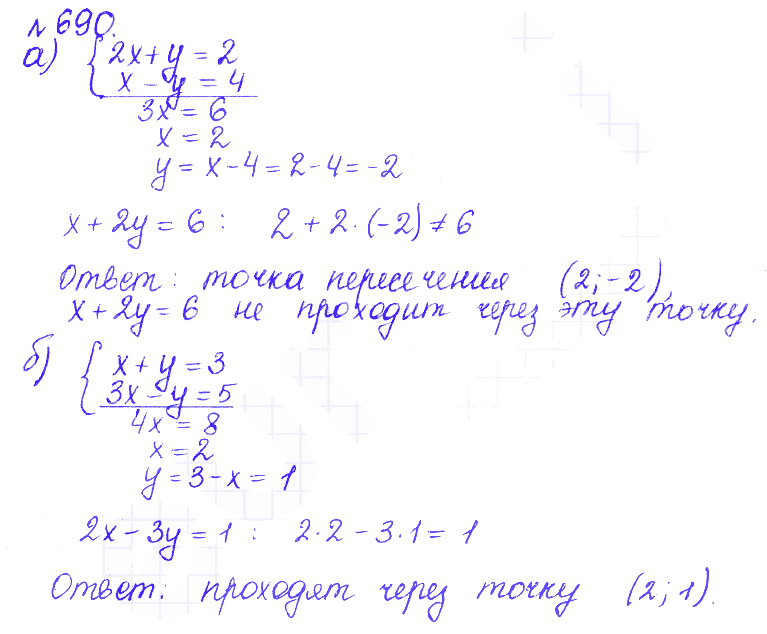 № 690.
а) { 2x + y = 2
x - y = 4
3x = 6
x = 2
y = x - 4 = 2 - 4 = -2
x + 2y = 6 : 2 + 2 · (-2) ≠ 6
Ответ: точка пересечения (2; -2),
x + 2y = 6 не проходит через эту точку.
б) { x + y = 3
3x - y = 5
4x = 8
x = 2
y = 3 - x = 1
2x - 3y = 1 : 2 · 2 - 3 · 1 = 1
Ответ: проходят через точку (2; 1).